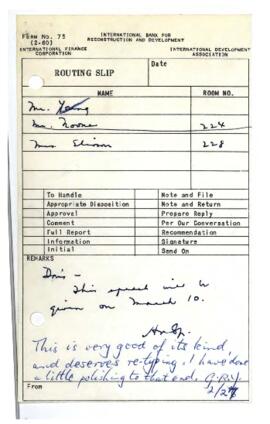 FORM NO. 75
(2-60)
INTERNATIONAL BANK FOR
RECONSTRUCTION AND DEVELOPMENT
INTERNATIONAL FINANCE
CORPORATION
INTERNATIONAL DEVELOPMENT
ASSOCIATION
ROUTING SLIP
Date
NAME
ROOM NO.
Mr. Young
Mr. Noone 224
Miss Eliason 228
To Handle
Note and File
Appropriate Disposition
Note and Return
Approval
Prepare Reply
Comment
Per Our Conversation
Full Report
Recommendation
Information
Signature
Initial
Send On
REMARKS
Doris -
This speech will be
given on March 10.
This is very good of its kind
and deserves re-typing. I have done
a little polishing to that end. G.P.Y.
2/27
From